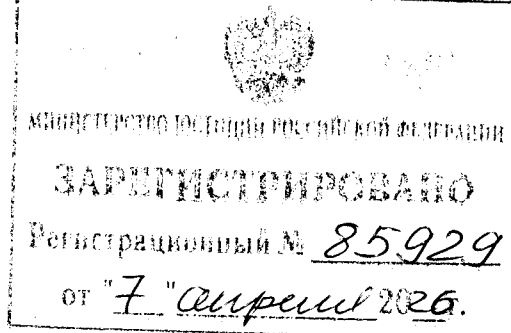 МИНИСТЕРСТВО ЮСТИЦИИ РОССИЙСКОЙ ФЕДЕРАЦИИ
ЗАРЕГИСТРИРОВАНО
Регистрационный № 85929
от "7" апреля 2026.